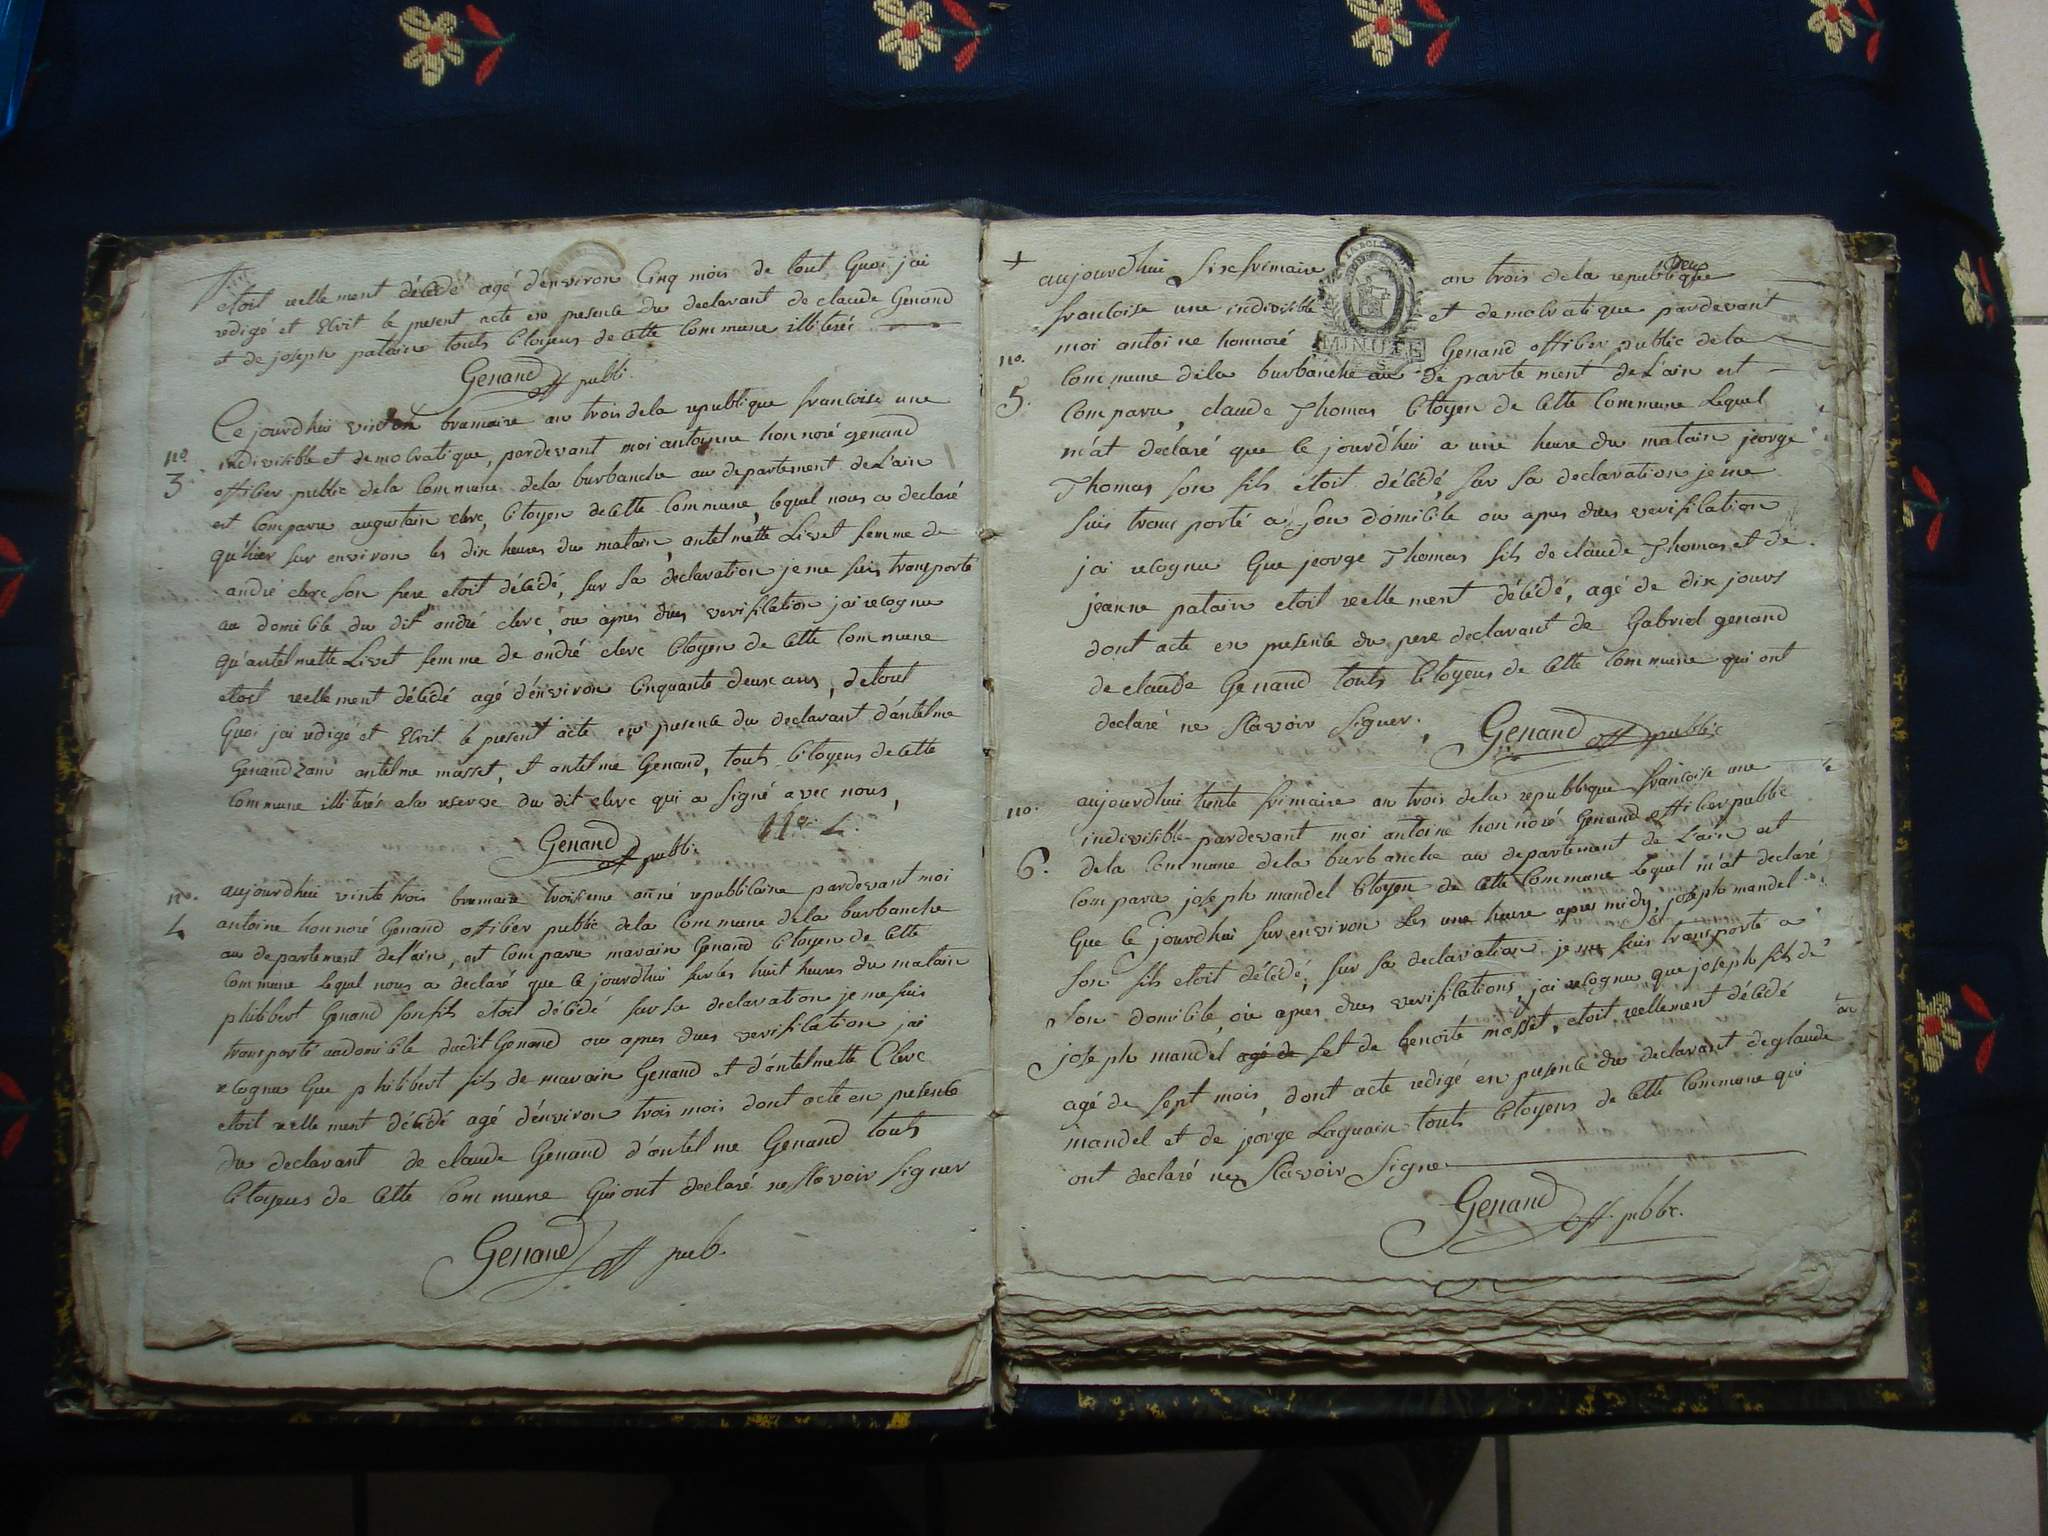 etoit reellement décédé agé d'environ Cinq mois de tout Quoi j'ai
redigé et Ecrit le present acte en presence du declarant de claude Genand
et de joseph patain touts Citoyens de Cette Commune illiterés
Genand off publi
Ce jourdhui vint brumaire an trois dela republique francoise une
no 3
indivisible et democratique, pardevant moi antoinne honnoré genand
officier public dela Commune dela burbanche au departement de L'ain
est Comparu augustain clerc, Citoyen de Cette Commune, lequel nous a declaré
qu'hier sur environ les dix heures du matain, antelmette Livet femme de
andré clerc son frere etoit décédé, sur sa declaration je me suis transporté
au domicile du dit andré clerc, ou apres dues verification j'ai recognu
qu'antelmette Livet femme de andré clerc Citoyen de Cette Commune
etoit reellement décédé agé d'environ Cinquante deux ans, detout
Quoi j'ai redigé et Ecrit le present acte en presente du declarant d'antelme
Genand antelme masset, et antelme Genand, touts Citoyens de Cette
Commune illiterés ala reserve du dit clerc qui a signé avec nous,
Genand off public
no. 4
aujourdhui vinte trois brumaire troisieme anné republicaine pardevant moi
antoine honnoré Genand officier public dela Commune dela burbanche
au departement de l'ain, est Comparu marain Genand Citoyen de Cette
Commune Lequel nous a declaré que Ce jourdhui sur les huit heures du matain
philibert Genand son fils etoit décédé sur sa declaration je me suis
transporté audomicile dudit Genand ou apres dues verification j'ai
recognu Que philibert fils de marain Genand et d'antelmette Clerc
etoit reellement décédé agé d'environ trois mois dont acte en presence
du declarant de claude Genand d'antelme Genand touts
Citoyens de Cette Commune Qui ont declaré ne scavoir signer
Genand off pub.
aujourdhui six frimaire an trois dela republique
francoise une indivisible et democratique pardevant
MINUTE
moi antoine honnoré Genand officier public dela
no. 5.
Commune dela burbanche au departement de L'ain est
Comparu, claude Thomas Citoyen de Cette Commune Lequel
m'at declaré que Ce jourdhui a une heure du matain jeorge
Thomas son fils etoit décédé, sur sa declaration je me
suis transporté a son domicile ou apres dues verification
j'ai recognu Que jeorge Thomas fils de claude Thomas et de
jeanne patain etoit reellement décédé, agé de dix jours
dont acte en presente du pere declarant de Gabriel genand
de claude Genand touts Citoyens de Cette Commune qui ont
declaré ne scavoir signer.
Genand off public
no. 6.
aujourdhui trente frimaire an trois dela republique francoise une
indivisible pardevant moi antoine honnoré Genand officier public
dela Commune dela burbanche au departement de L'ain est
Comparu joseph mandel Citoyen de Cette Commune Lequel m'at declaré
Que Ce jourdhui sur environ Les une heure apres midy, joseph mandel
son fils etoit décédé, sur sa declaration, je me suis transporté a
son domicile, ou apres dues verifications j'ai recognu que joseph fils de
joseph mandel agé de fet de benoite masset, etoit reellement décédé
agé de sept mois, dont acte redigé en presente du declarant de glaude
mandel et de jeorge Laguain touts Citoyens de Cette Commune qui
ont declaré ne scavoir signer
Genand off. public.